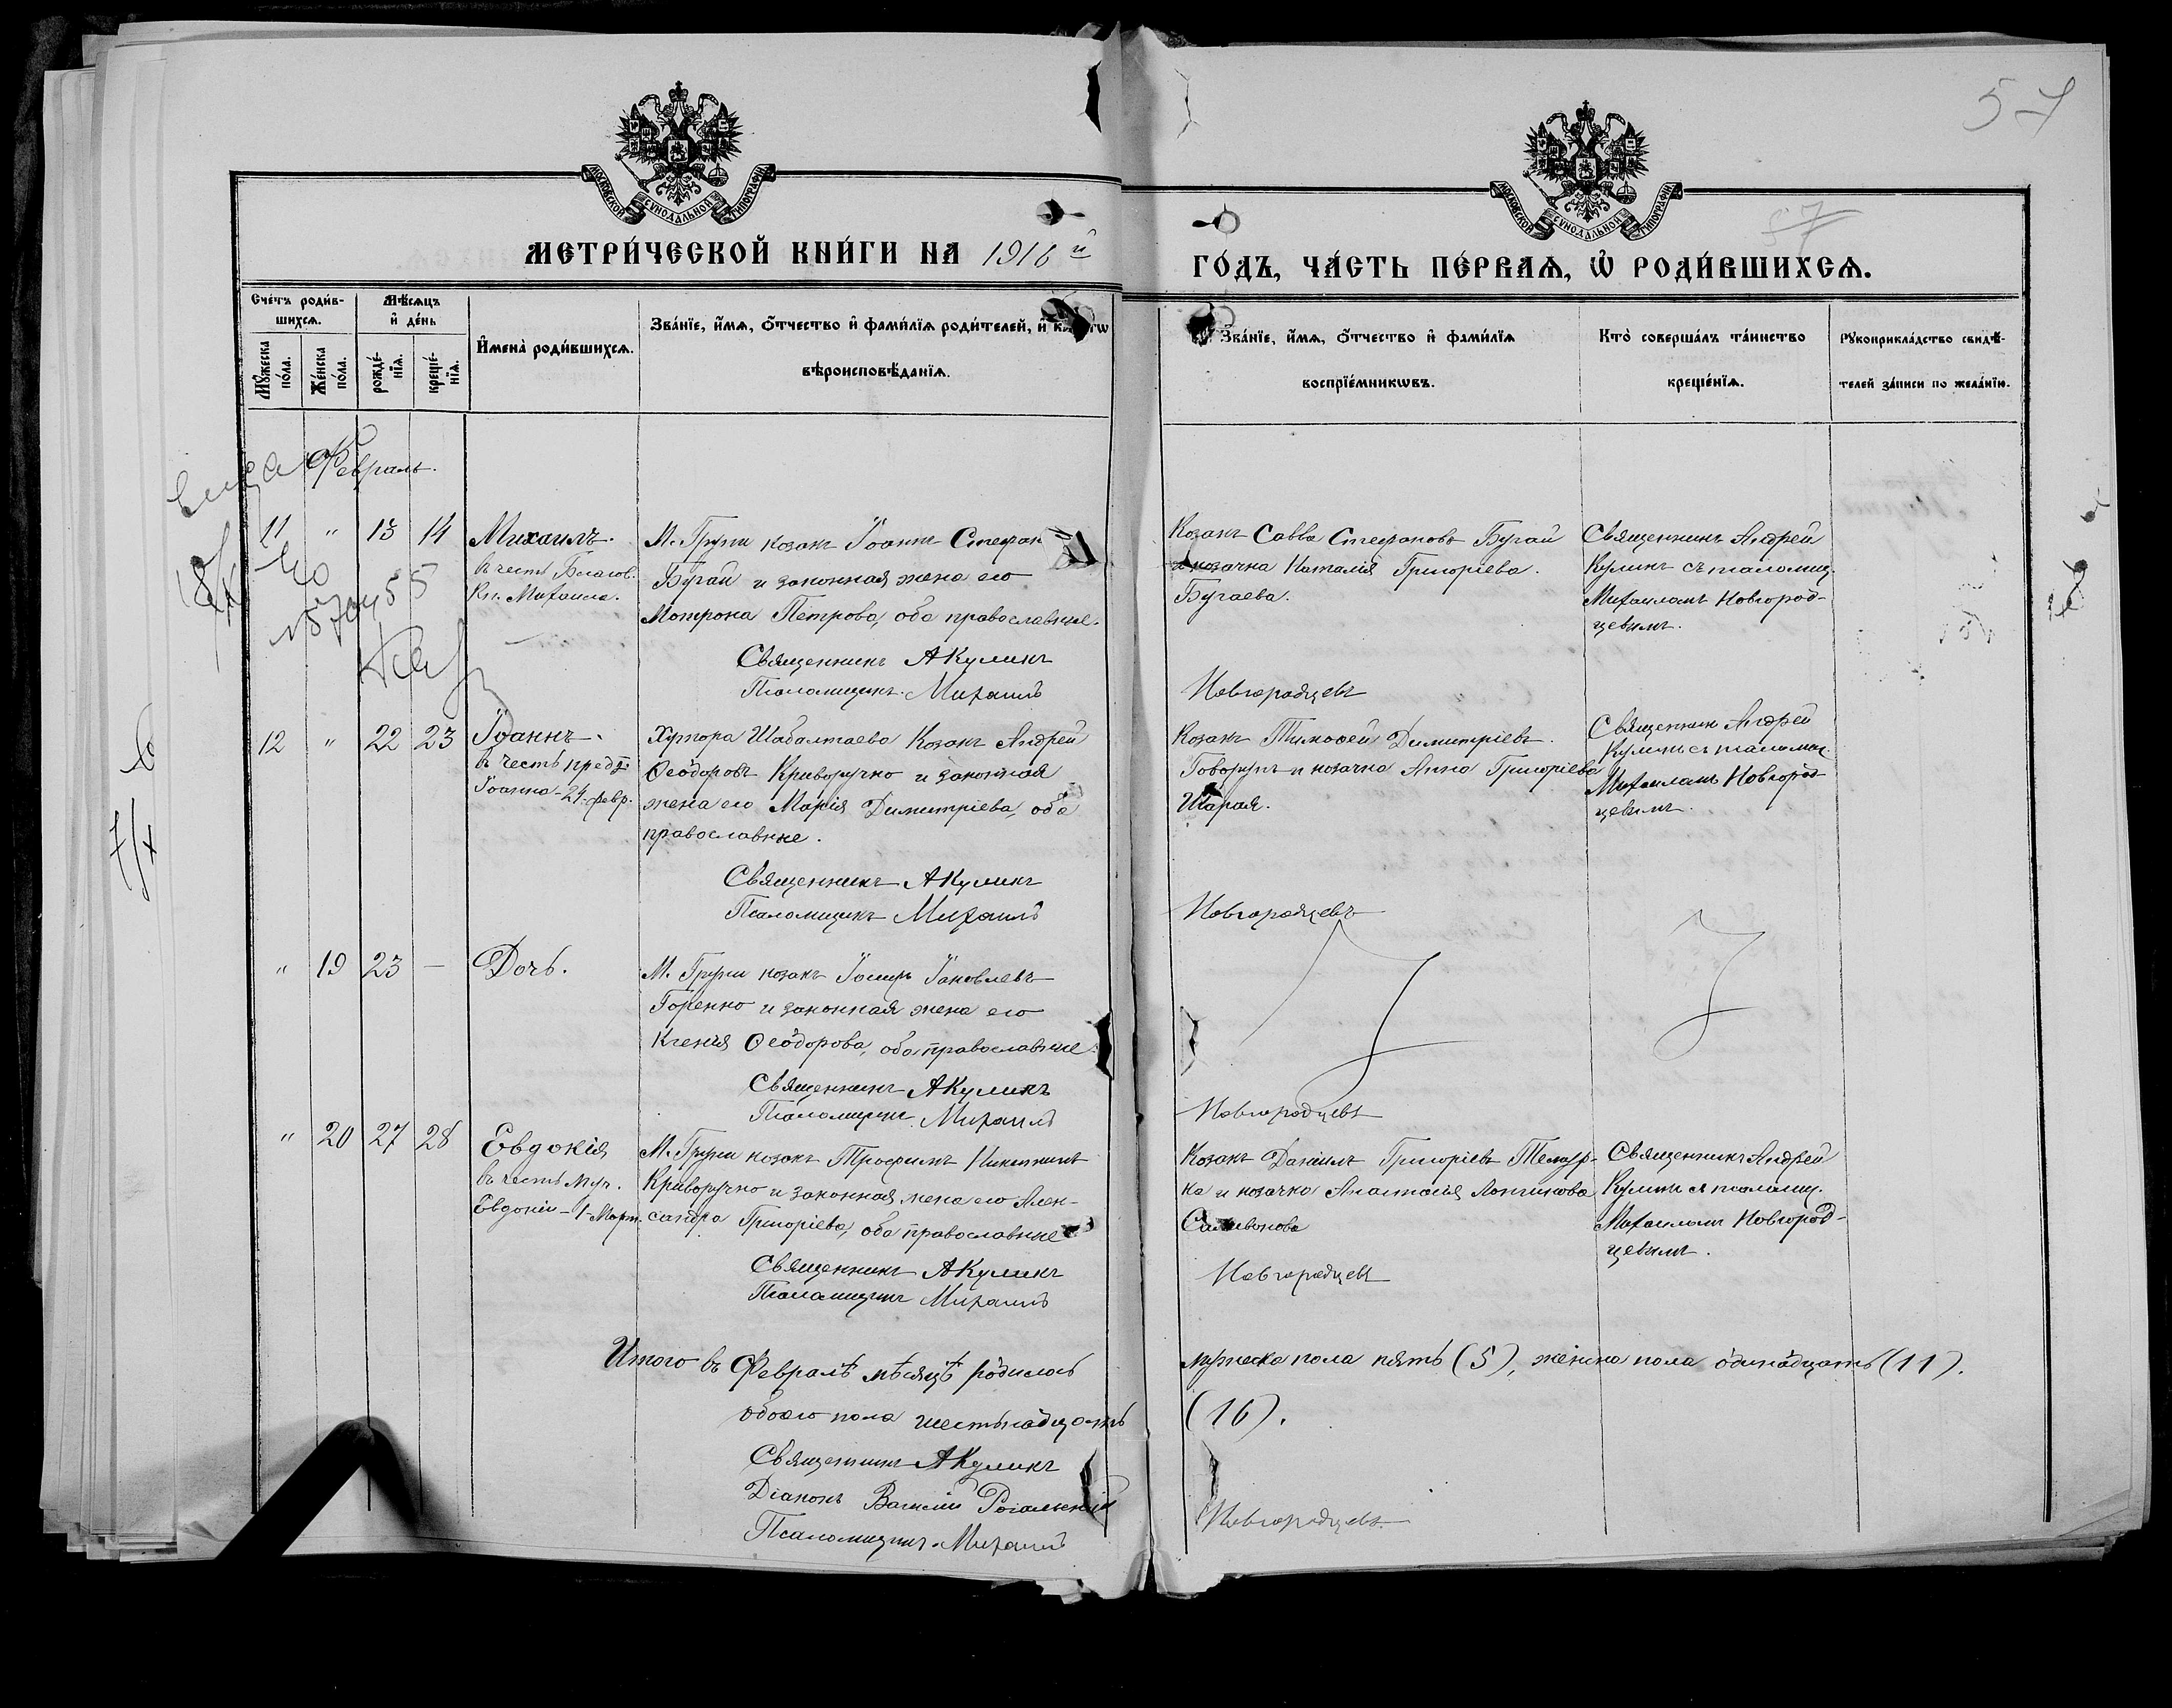 57
МОСКОВСКОЙ СѴНОДАЛЬНОЙ ТИПОГРАФІИ
МОСКОВСКОЙ СѴНОДАЛЬНОЙ ТИПОГРАФІИ
МЕТРИ́ЧЕСКОЙ КНИ́ГИ НА 1916 й
ГО́ДЪ, ЧА́СТЬ ПЕ́РВАѦ, Ѽ РОДИ́ВШИХСѦ.
57
Сче́тъ роди́вшихсѧ.
Мꙋ́жеска по́ла.
Же́нска по́ла.
Мѣ́сѧцъ и҆ де́нь
рожде́нїѧ.
креще́нїѧ.
И҆мена̀ роди́вшихсѧ.
Зва́нїе, и҆́мѧ, ѻ҆́тчество и҆ фами́лїѧ роди́телей, и҆
вѣроисповѣ́данїѧ.
Зва́нїе, и҆́мѧ, ѻ҆́тчество и҆ фами́лїѧ
воспрїе́мникѡвъ.
Кто̀ соверша́лъ та́инство
креще́нїѧ.
Рꙋкоприкла́дство свидѣ́-
телей за́писи по жела́нїю.
Февраль.
11 " 13 14 Михаилъ.
въ честь Благов.
Кн. Михаила.
М. Груни козакъ Іоаннъ Стефан
Бугай и законная жена его
Мотрона Петрова, оба православные.
Священникъ А Куликъ
Псаломщикъ Михаилъ
Козакъ Савва Стефановъ Бугай
и козачка Наталія Григоріева
Бугаева.
Новгородцевъ
Священникъ Андрей
Куликъ съ псаломщ.
Михаиломъ Новгород-
цевымъ.
12 " 22 23 Іоаннъ.
въ честь
Іоанна - 24 февр.
Хутора Шабалтаева Козакъ Андрей
Ѳеодоровъ Криворучко и законная
жена его Марія Димитріева, оба
православные.
Священникъ А Куликъ
Псаломщикъ Михаилъ
Козакъ Тимоѳей Димитріевъ
Говорунъ и козачка Анна Григоріева
Шарая.
Новгородцевъ
Священник Андрей
Куликъ съ псаломщ.
Михаиломъ Новгород-
цевымъ.
" 19 23 — Дочь.
М. Груни козакъ Іосифъ Іаковлевъ
Горенко и законная жена его
Ксенія Ѳеодорова, оба православные.
Священникъ А Куликъ
Псаломщикъ Михаилъ
Новгородцевъ
" 20 27 28 Евдокія
въ честь Муч.
Евдокіи - 1 Март.
М. Груни козакъ Трофимъ Никитинъ
Криворучко и законная жена его Алек-
сандра Григоріева, оба православные
Священникъ А Куликъ
Псаломщикъ Михаилъ
Козакъ Даніилъ Григоріевъ
ка и козачка Анастасія Логгинова
Новгородцевъ
Священникъ Андрей
Куликъ съ псаломщ.
Михаиломъ Новгород-
цевымъ.
Итого въ Февралѣ мѣсяцѣ родилось
мужеска пола пять (5), женска пола одинадцать (11).
обоего пола шестьнадцать
(16).
Священникъ А Куликъ
Діаконъ Василій Рогальскій
Псаломщикъ Михаилъ
Новгородцевъ